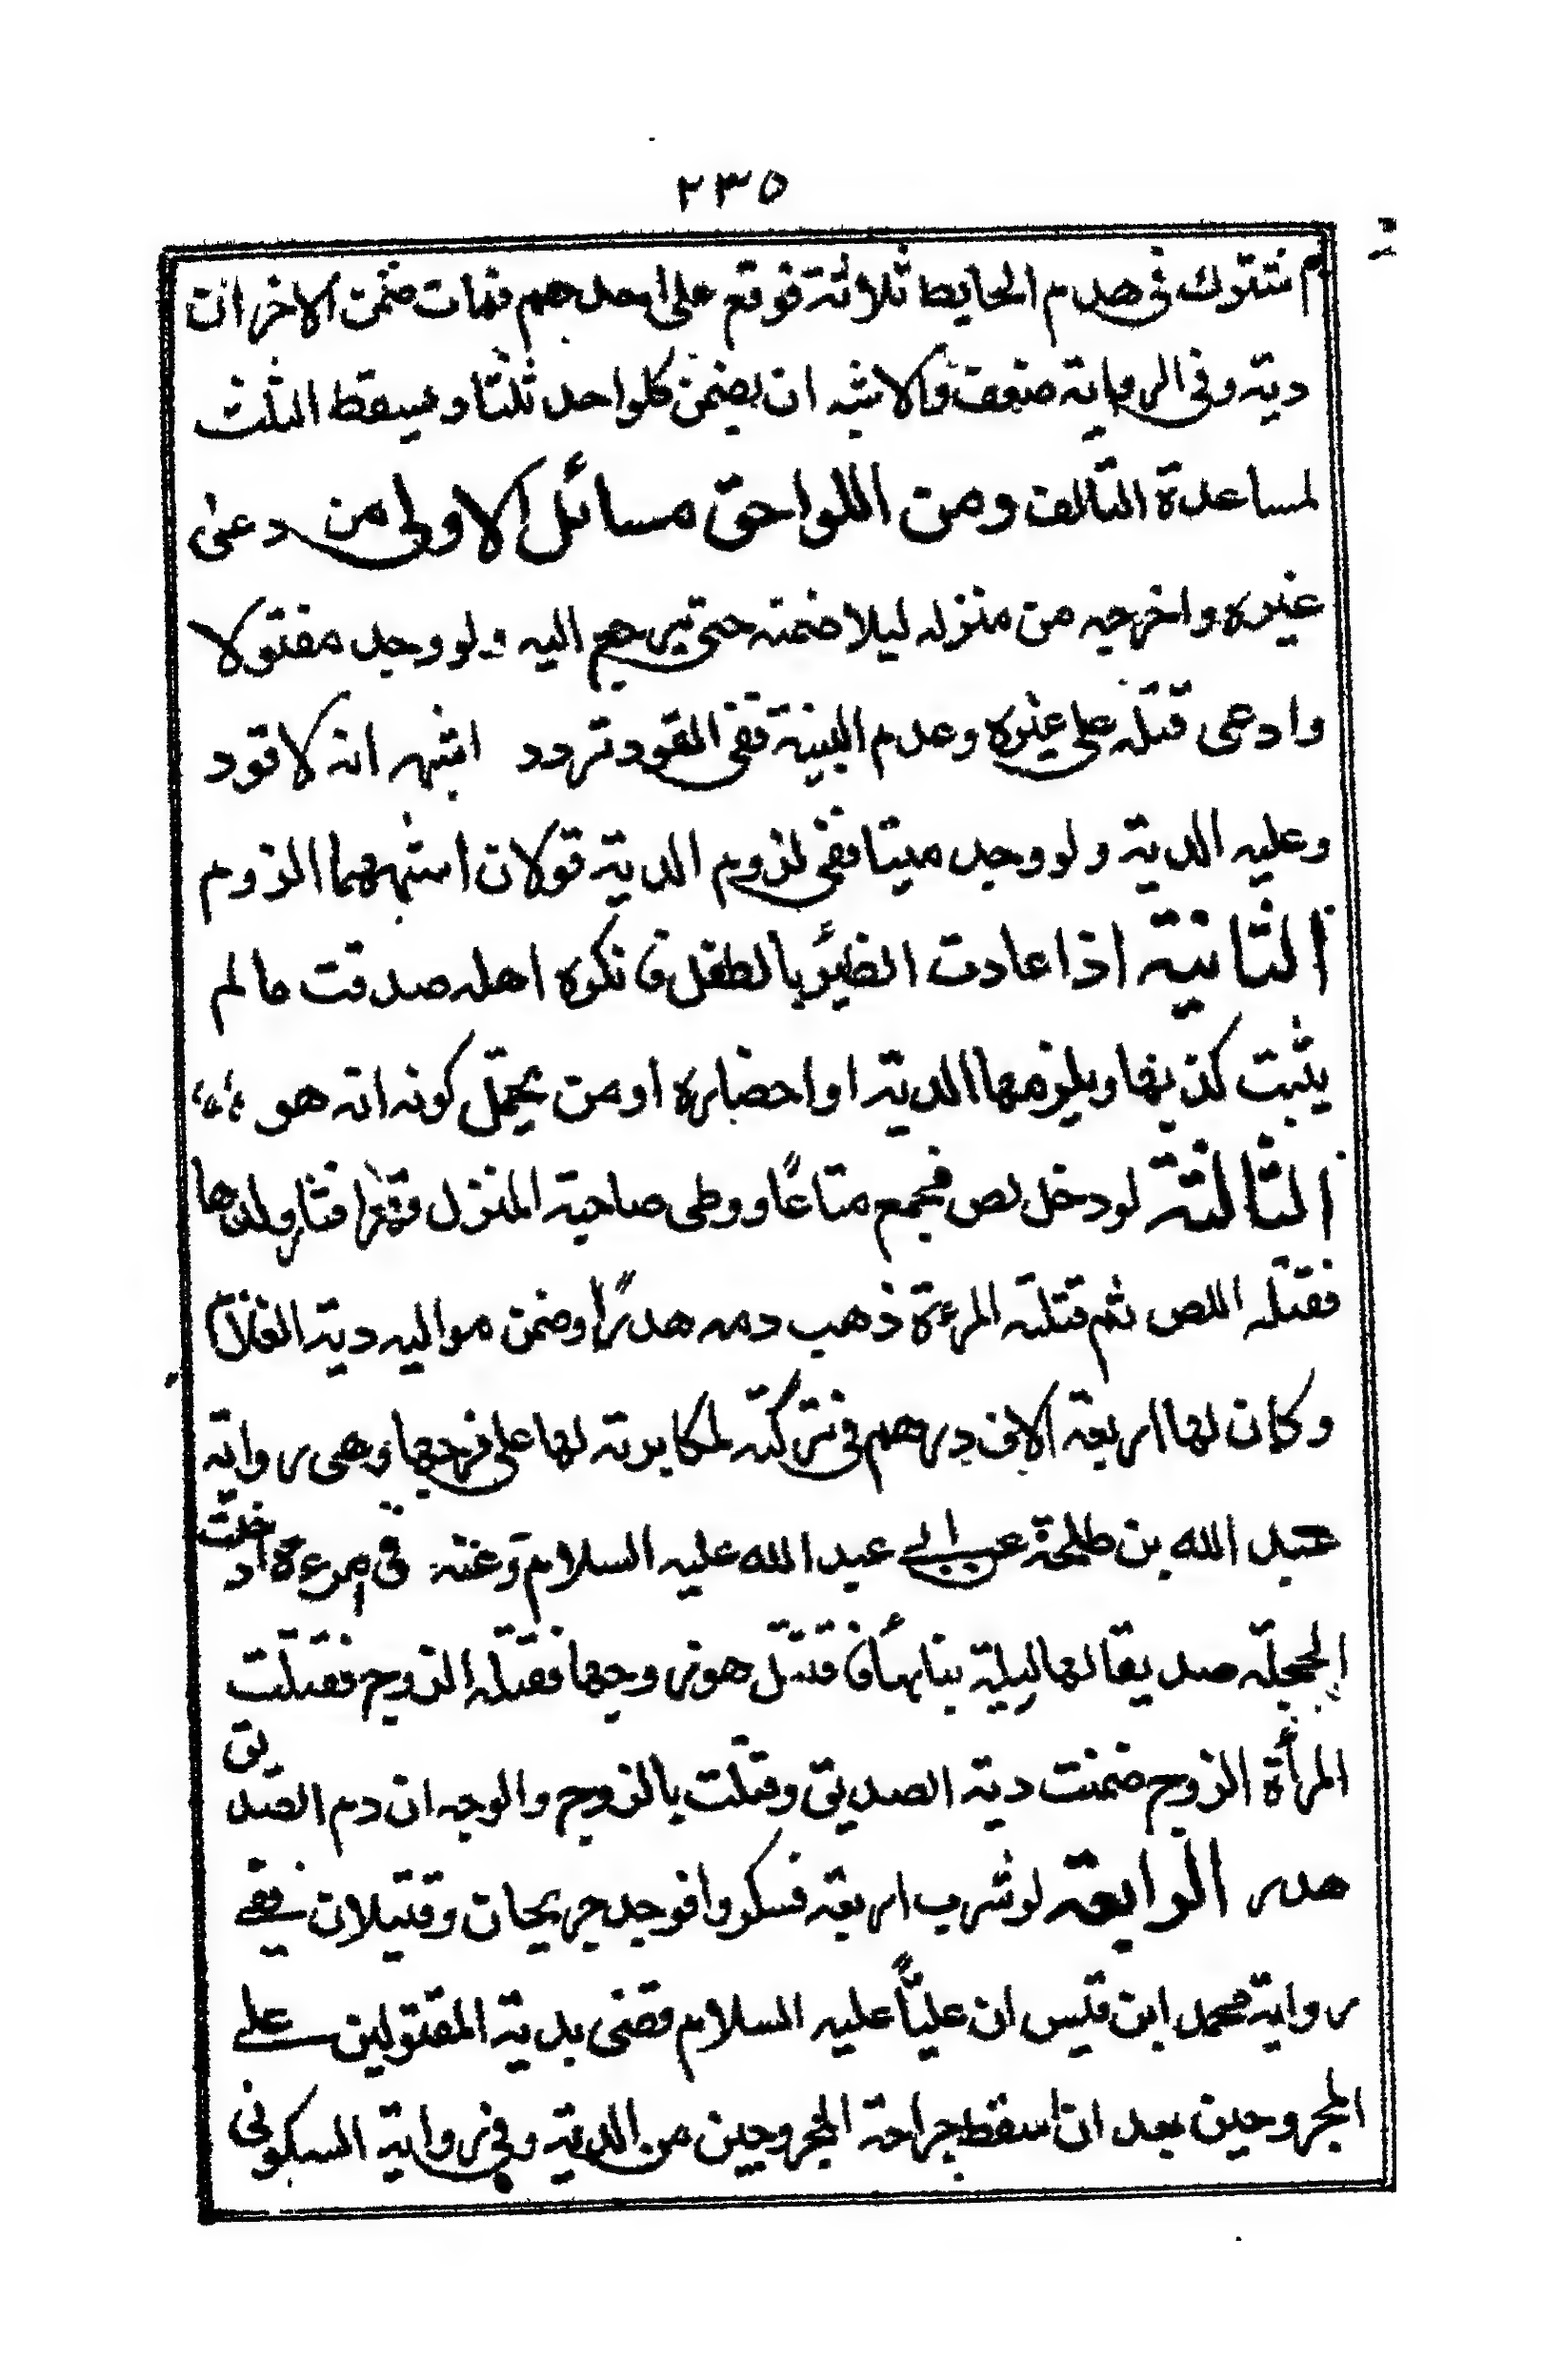 ٢٣٥
اشترك في هدم الحايط ثلاثة فوقع على احدهم فمات ضمن الاخران
ديته وفي الرواية ضعف والاشبه ان يضمن كلواحد ثلثا ويسقط الثلث
لمساعدة التالف ومن اللواحق مسائل الاولى من دعى
غيره واخرجه من منزله ليلا ضمنه حتى يرجع اليه ولو وجد مقتولا
وادعى قتله على غيره وعدم البينة ففي القود تردد اشبهه انه لا قود
وعليه الدية ولو وجد ميتا ففي لزوم الدية قولان اشبههما اللزوم
الثانية اذا عادت الظئر بالطفل فانكره اهله صدقت ما لم
يثبت كذبها ويلزمها الدية او احضاره او من يحتمل كونه انه هو
الثالثة لو دخل لص فجمع متاعًا ووطى صاحبة المنزل قهرا فثار ولدها
فقتله اللص ثم قتلته المرءة ذهب دمه هدرًا وضمن مواليه دية الغلام
وكان لها اربعة الاف درهم في تركته لمكابرته لها على فرجها وهي رواية
عبد الله بن طلحة عن ابي عبد الله عليه السلام وعنه في امرءة ادخلت
الحجلة صديقا لها ليلة بنائها فاقتتل هو وزوجها فقتله الزوج فقتلت
المرأة الزوج ضمنت دية الصديق وقتلت بالزوج والوجه ان دم الصديق
هدر الرابعة لو شرب اربعة فسكروا فوجد جريحان وقتيلان ففي
رواية محمد ابن قيس ان عليًّا عليه السلام قضى بدية المقتولين على
المجروحين بعد ان اسقط جراحة المجروحين من الدية وفي رواية السكوني